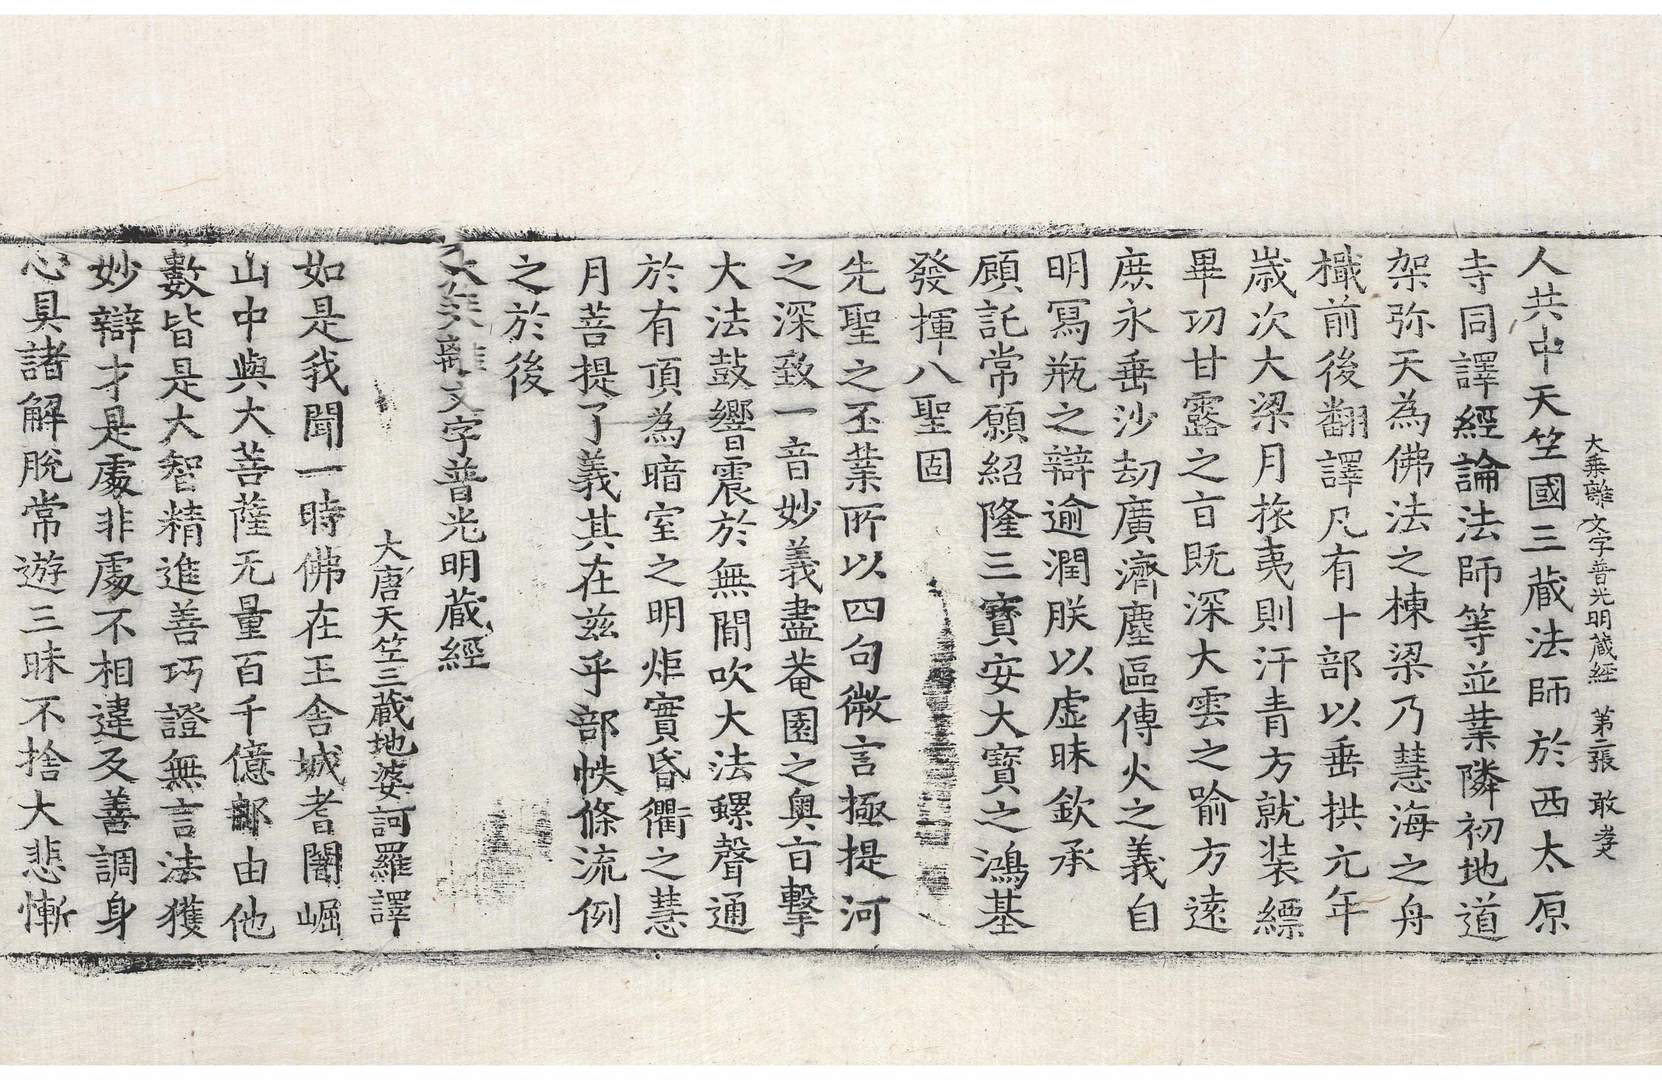 大乗離文字普光明蔵経 第二張 敢孝
人共中天竺國三蔵法師於西太原
寺同譯經論法師等並業隣初地道
架弥天為佛法之棟梁乃慧海之舟
檝前後翻譯凡有十部以垂拱元年
歳次大梁月旅夷則汗青方就装縹
畢切甘露之㫖既深大雲之喻方遠
庶永垂沙劫廣濟塵區傳火之義自
明寫瓶之辯逾潤朕以虚昧欽承
顧託常願紹隆三寶安大寶之鴻基
發揮八聖固
先聖之丕業所以四句微言極提河
之深致一音妙義盡菴園之奥㫖擊
大法鼓響震於無閒吹大法螺聲通
於有頂為暗室之明炬實昏衢之慧
月菩提了義其在兹乎部帙條流例
之於後
大乗離文字普光明蔵經
大唐天竺三蔵地婆訶羅譯
如是我聞一時佛在王舎城耆闍崛
山中與大菩薩无量百千億那由他
數皆是大智精進善巧證無言法獲
妙辯才是處非處不相違反善調身
心具諸解脫常遊三昧不捨大悲慚